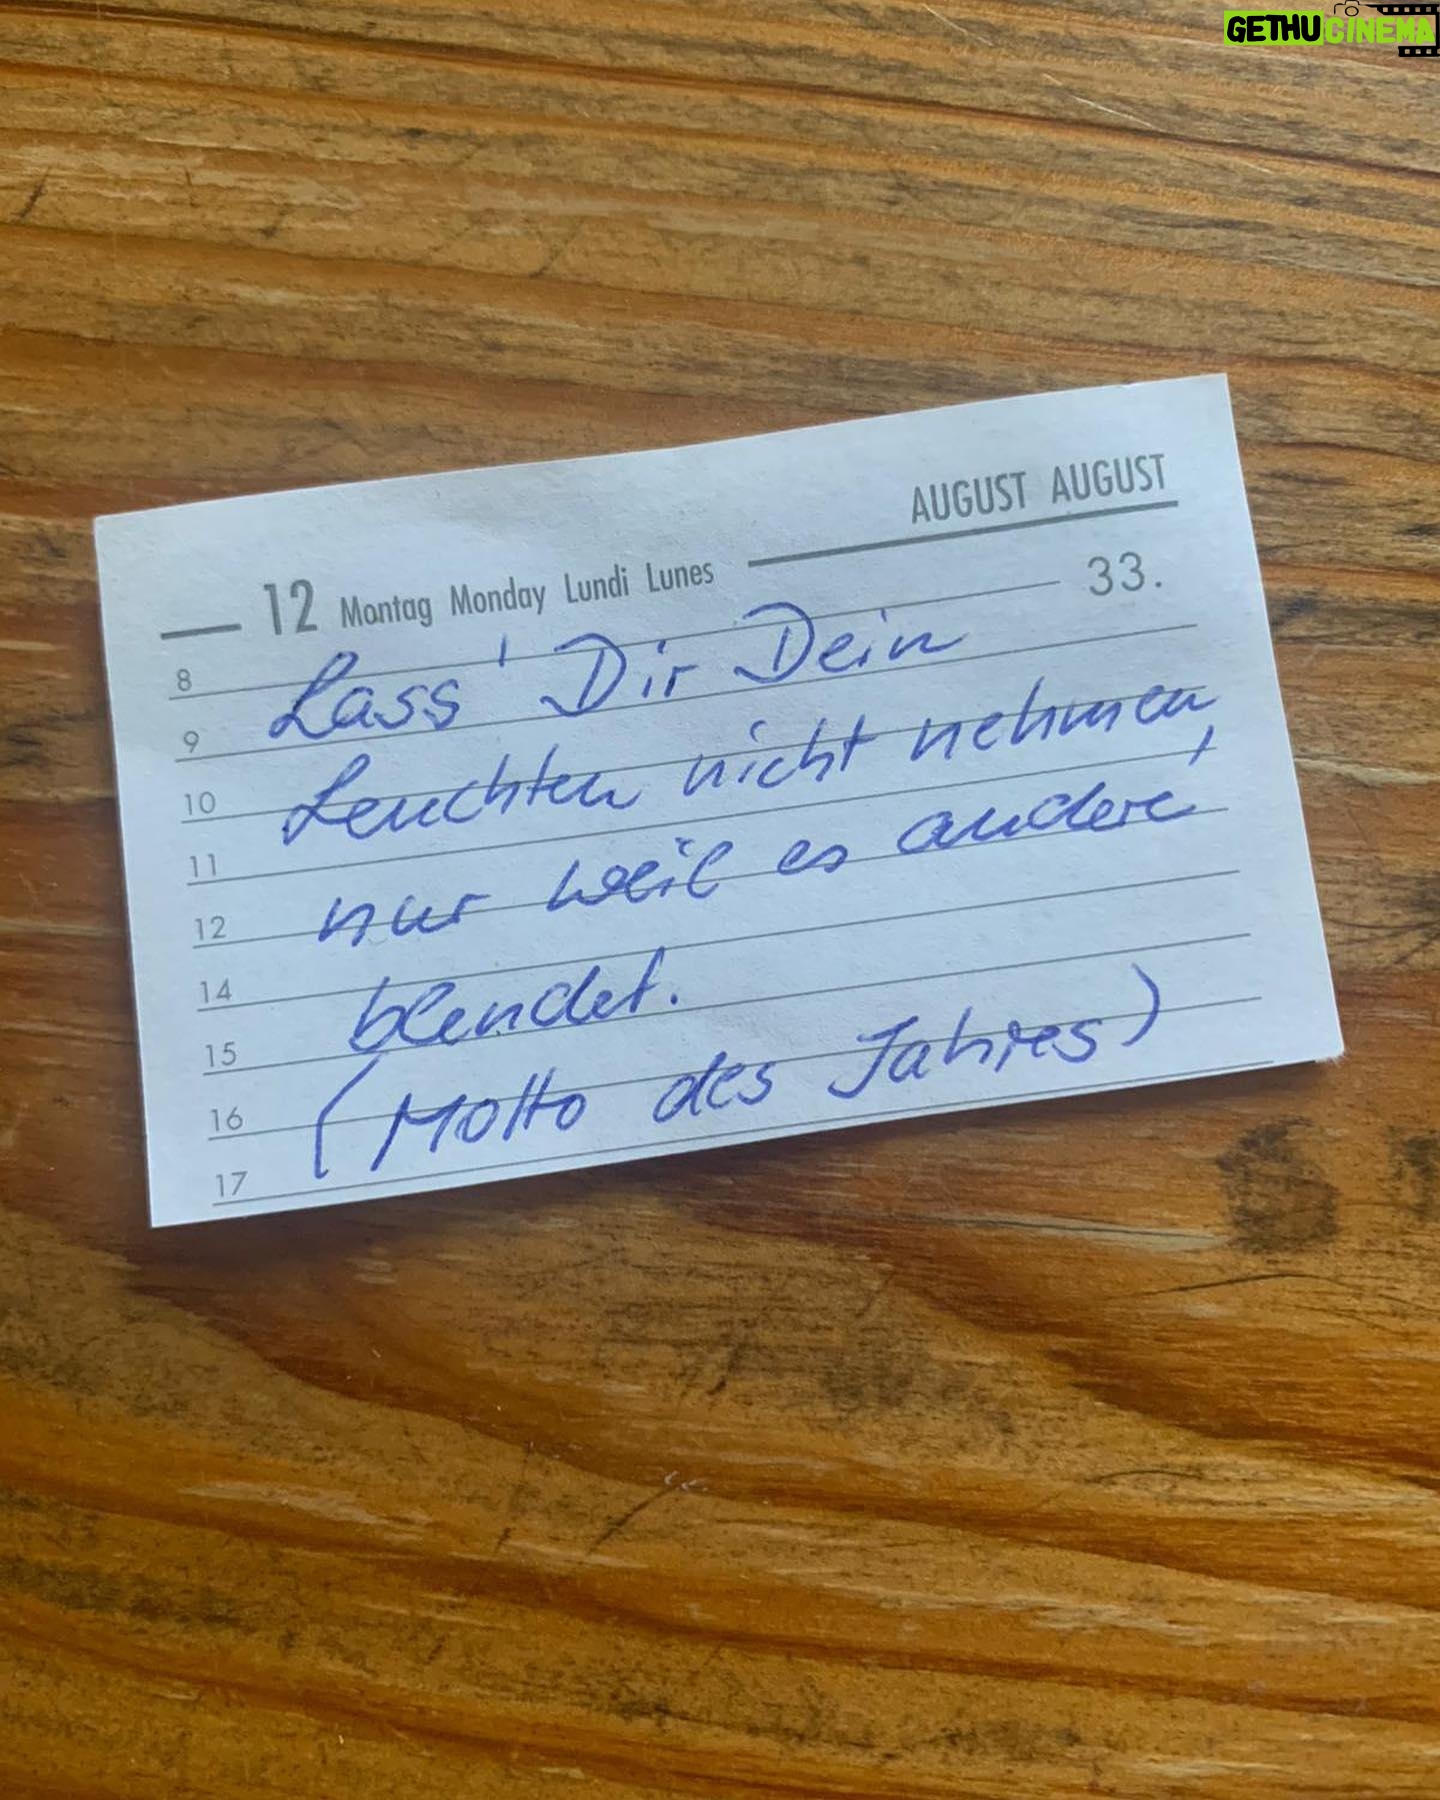 GETHUCINEMA
AUGUST AUGUST
12 Montag Monday Lundi Lunes
33.
8
Lass' Dir Dein
9
Leuchten nicht nehmen,
10
11
nur weil es andere
12
14
blendet.
15
(Motto des Jahres)
16
17